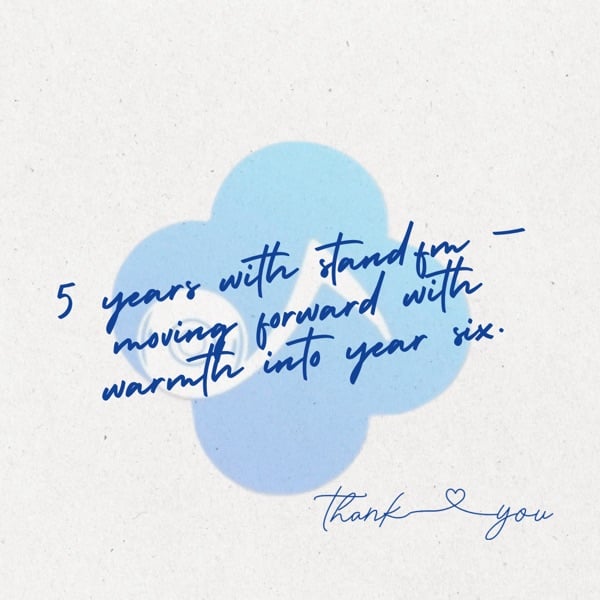 5 years with standfm –
moving forward with
warmth into year six.
thank you